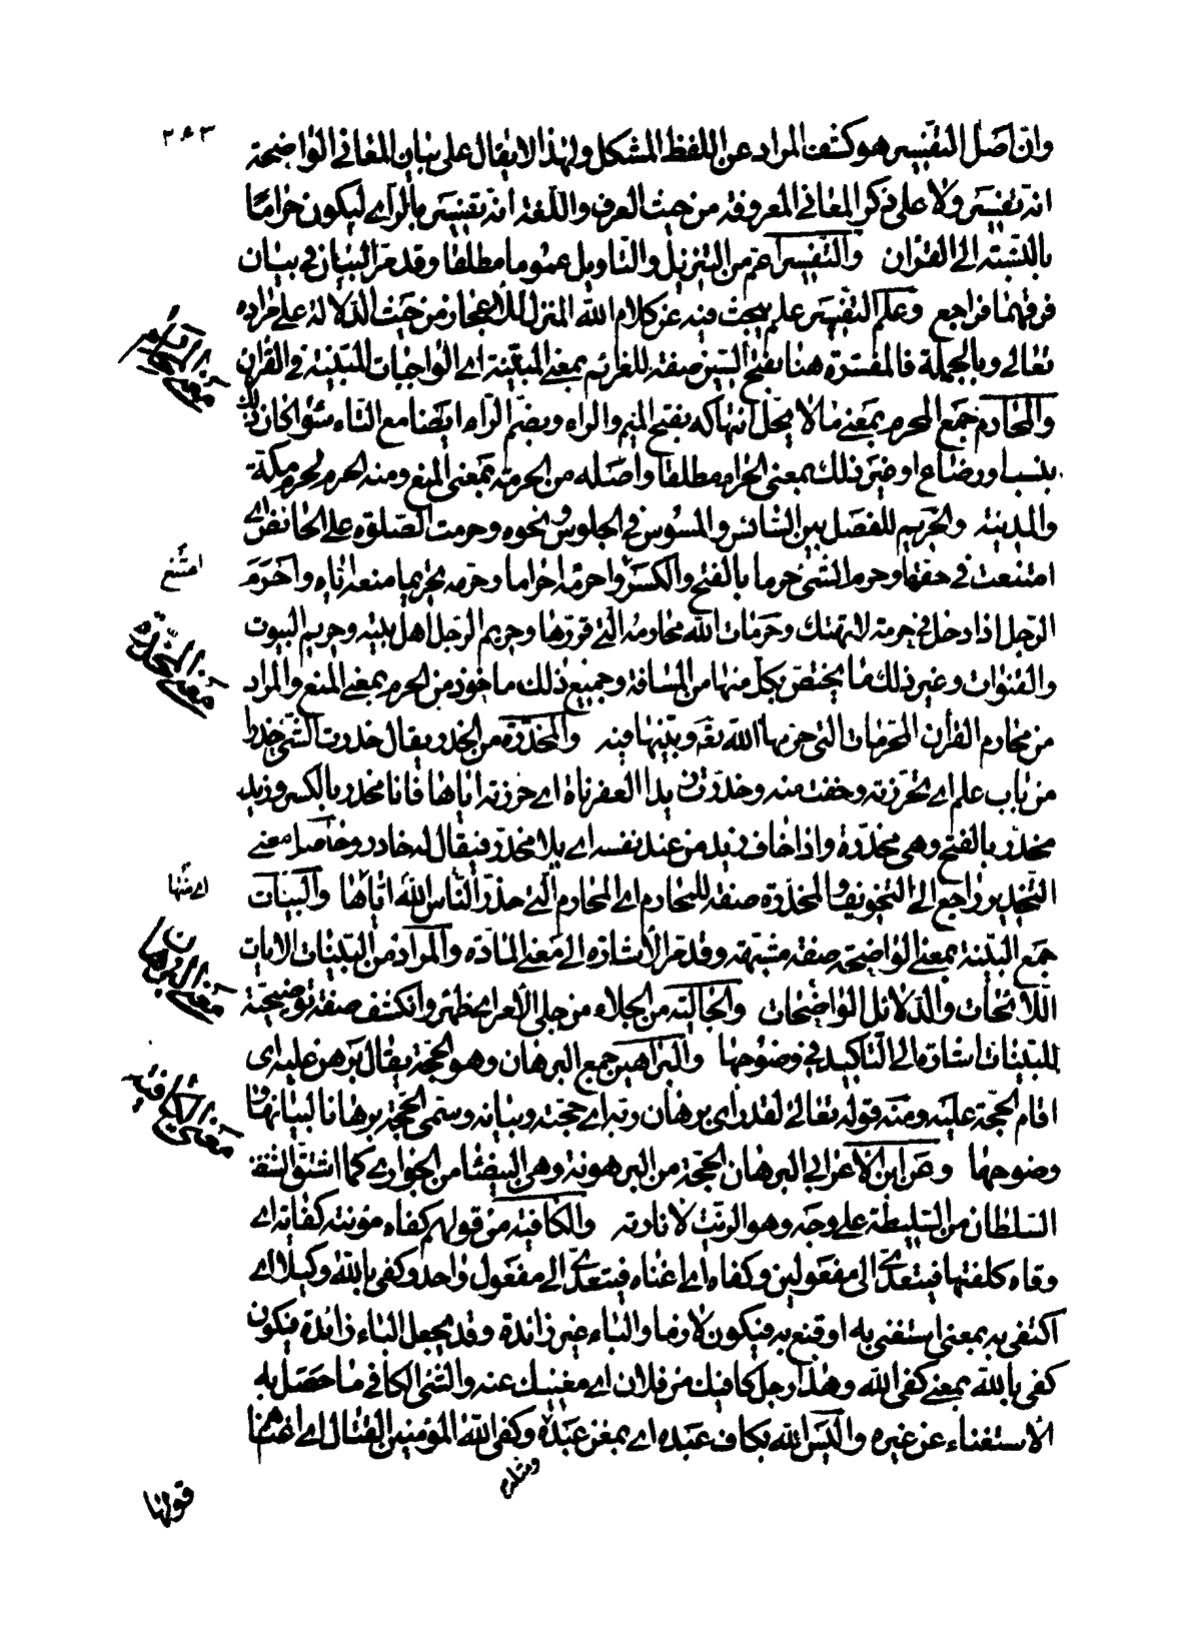 ٢٤٣
وان اصل التفسير هو كشف المراد عن اللفظ المشكل ولهذا لا يقال على بيان المعاني الواضحة
انه تفسير ولا على ذكر المعاني المعروفة من حيث العرف واللغة انه تفسير بالراى ليكون حراما
بالنسبة الى القران والتفسير اعم من التنزيل والتاويل عموما مطلقا وقد مر البيان فى بيان
فرقهما فراجع وعلم التفسير علم يبحث فيه عن كلام الله المنزل للاعجاز من حيث الدلالة على مراده
تعالى وبالجملة فالمفسرة هنا بفتح السين صفة للغرائم بمعنى المبينة اى الواجبات المبينة فى القران
معنى المحارم
والمحارم جمع المحرم بمعنى ما لا يحل انتهاكه بفتح الميم والراء وبضم الراء ايضا مع التاء سواء كان ذلك
بنسب او رضاع او غير ذلك بمعنى الحرام مطلقا واصله من الحرمة بمعنى المنع ومنه الحرم لحرم مكة
والمدينة والحريم للفصل بين السائس والمسوس فى الجلوس ونحوه وحرمت الصلوة على الحائض اى
امتنعت فى حقها وحرم الشئ حرما بالفتح والكسر واحرمه احراما وحرمه تحريما منعه اياه واحرم
امتنع
الرجل اذا دخل فى حرمة لا تهتك وحرمات الله محارمه التى قررها وحريم الرجل اهل بيته وحريم البيوت
والقنوات وغير ذلك ما يختص بكل منها من المسافة وجميع ذلك ماخوذ من الحرم بمعنى المنع والمراد
معنى المحذرة
من محارم القران المحرمات التى حرمها الله تعه وبينها فيه والمحذرة من الحذر يقال حذرت الشئ حذرا
من باب علم اى تحرزته وخفت منه وحذرت زيدا العفرناة اى حرزته اياها فانا محذر بالكسر وزيد
محذر بالفتح وهى محذرة واذا خاف زيد من عند نفسه اى بلا محذر فيقال له حاذر وحاصل معنى
التحذير راجع الى التخويف والمحذرة صفة للمحارم اى المحارم التى حذر الناس الله اياها والبينات
اى منها
جمع البينة بمعنى الواضحة صفة مشبهة وقد مر الاشارة الى معنى المادة والمراد من البينات الايات
اللائحات والدلائل الواضحات والجالية من الجلاء من جلى الامر اى ظهر وانكشف صفة توضيحية
معنى البرهان
للبينات اشارة الى التاكيد فى وضوحها والبراهين جمع البرهان وهو الحجة يقال برهن عليه اى
اقام الحجة عليه ومنه قوله تعالى لقد راى برهان ربه اى حجته وبيانه وسمى الحجة برهانا لبيانها و
معنى الكافية
وضوحها وعن ابن الاعرابى البرهان الحجة من البرهونة وهى البيضاء من الجوارى كما اشتق
السلطان من السليطة على وجه وهو الزيت لانارته والكافية من قولهم كفاه مؤنته كفاية اى
وقاه كلفتها فيتعدى الى مفعولين وكفاه اى اغناه فيتعدى الى مفعول واحد وكفى بالله وكيلا اى
اكتفى به بمعنى استغنى به او قنع به فيكون لازما والباء غير زائدة وقد يجعل الباء زائدة فيكون
كفى بالله بمعنى كفى الله وهذا رجل كافيك من فلان اى مغنيك عنه والشئ الكافى ما حصل به
الاستغناء عن غيره واليس الله بكاف عبده اى بمغن عبده وكفى الله المؤمنين القتال اى اغناها
قولنا